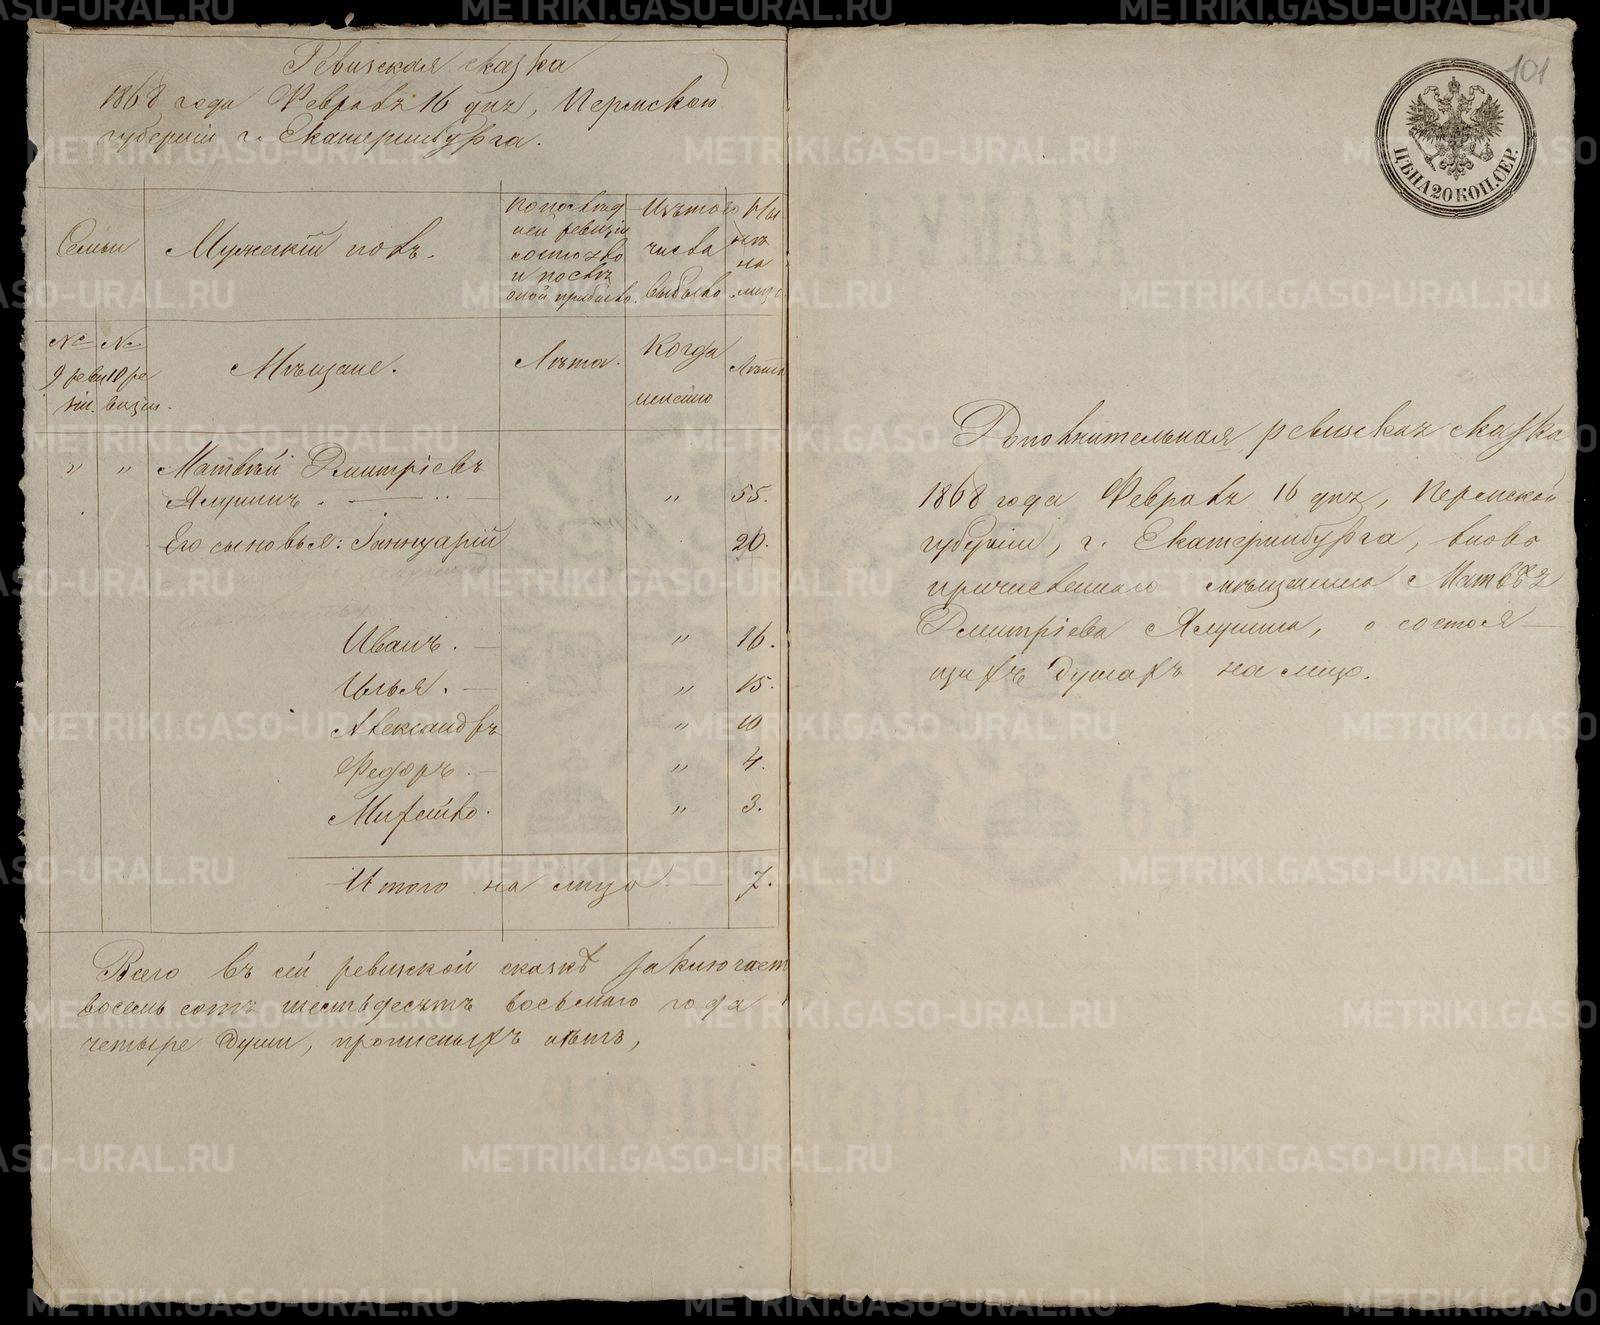 Ревизская сказка
1868 года Февраля 16 дня, Пермской
губернiи г. Екатеринбурга.
Семьи
Мужескiй полъ.
По последней ревизiи состояло и после оной прибыло.
Изъ того числа выбыло
Ныне на лицо
№ 9 ревизiи.
№ 10 ревизiи.
Мѣщане.
Лѣта.
Когда именно
Лѣта
" " Матвѣй Дмитрiевъ
Ялунинъ. " 55.
Его сыновья: Іаннуарiй 20.
Иванъ. " 16.
Илья. " 15.
Александръ " 10
Федоръ. " 4.
Михайло. " 3.
Итого на лицо 7.
Всего въ сей ревизской сказкѣ заключает
восемь сотъ шестьдесятъ восьмаго года
четыре души, прописныхъ нѣтъ,
101
ЦѢНА 20 КОП. СЕР.
Дополнительная ревизская сказка
1868 года Февраля 16 дня, Пермской
губернiи, г. Екатеринбурга, вновь
причисленнаго мѣщанина Матвѣя
Дмитрiева Ялунина, о состоя-
щихъ душахъ на лицо.
METRIKI.GASO-URAL.RU